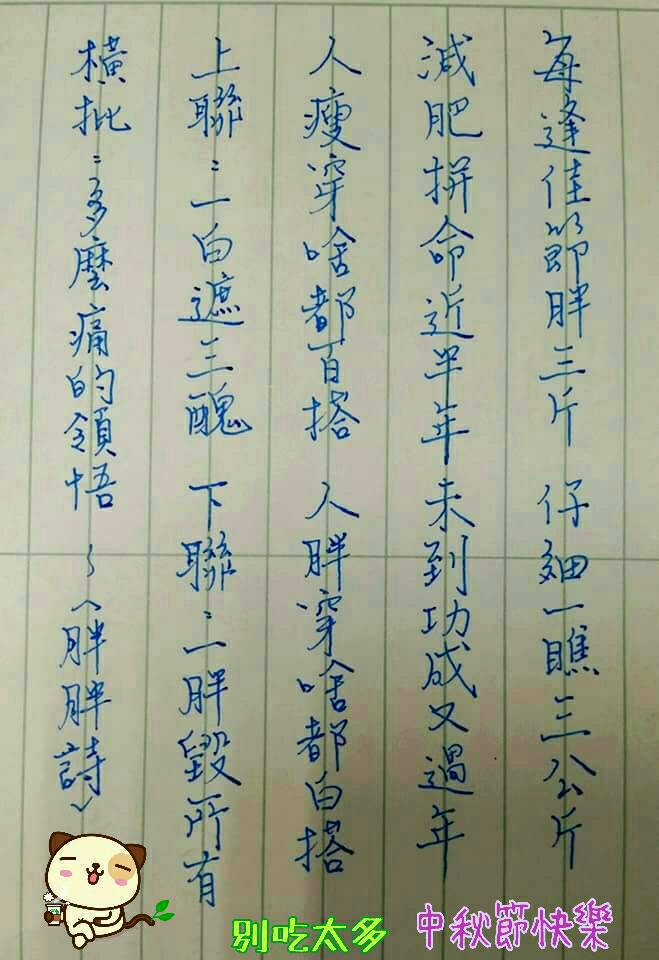 每逢佳節胖三斤 仔細一瞧三公斤
減肥拼命近半年 未到功成又過年
人瘦穿啥都百搭 人胖穿啥都白搭
上聯：一白遮三醜 下聯：一胖毀所有
橫批：多麼痛的領悟 ~〈胖胖詩〉
別吃太多 中秋節快樂